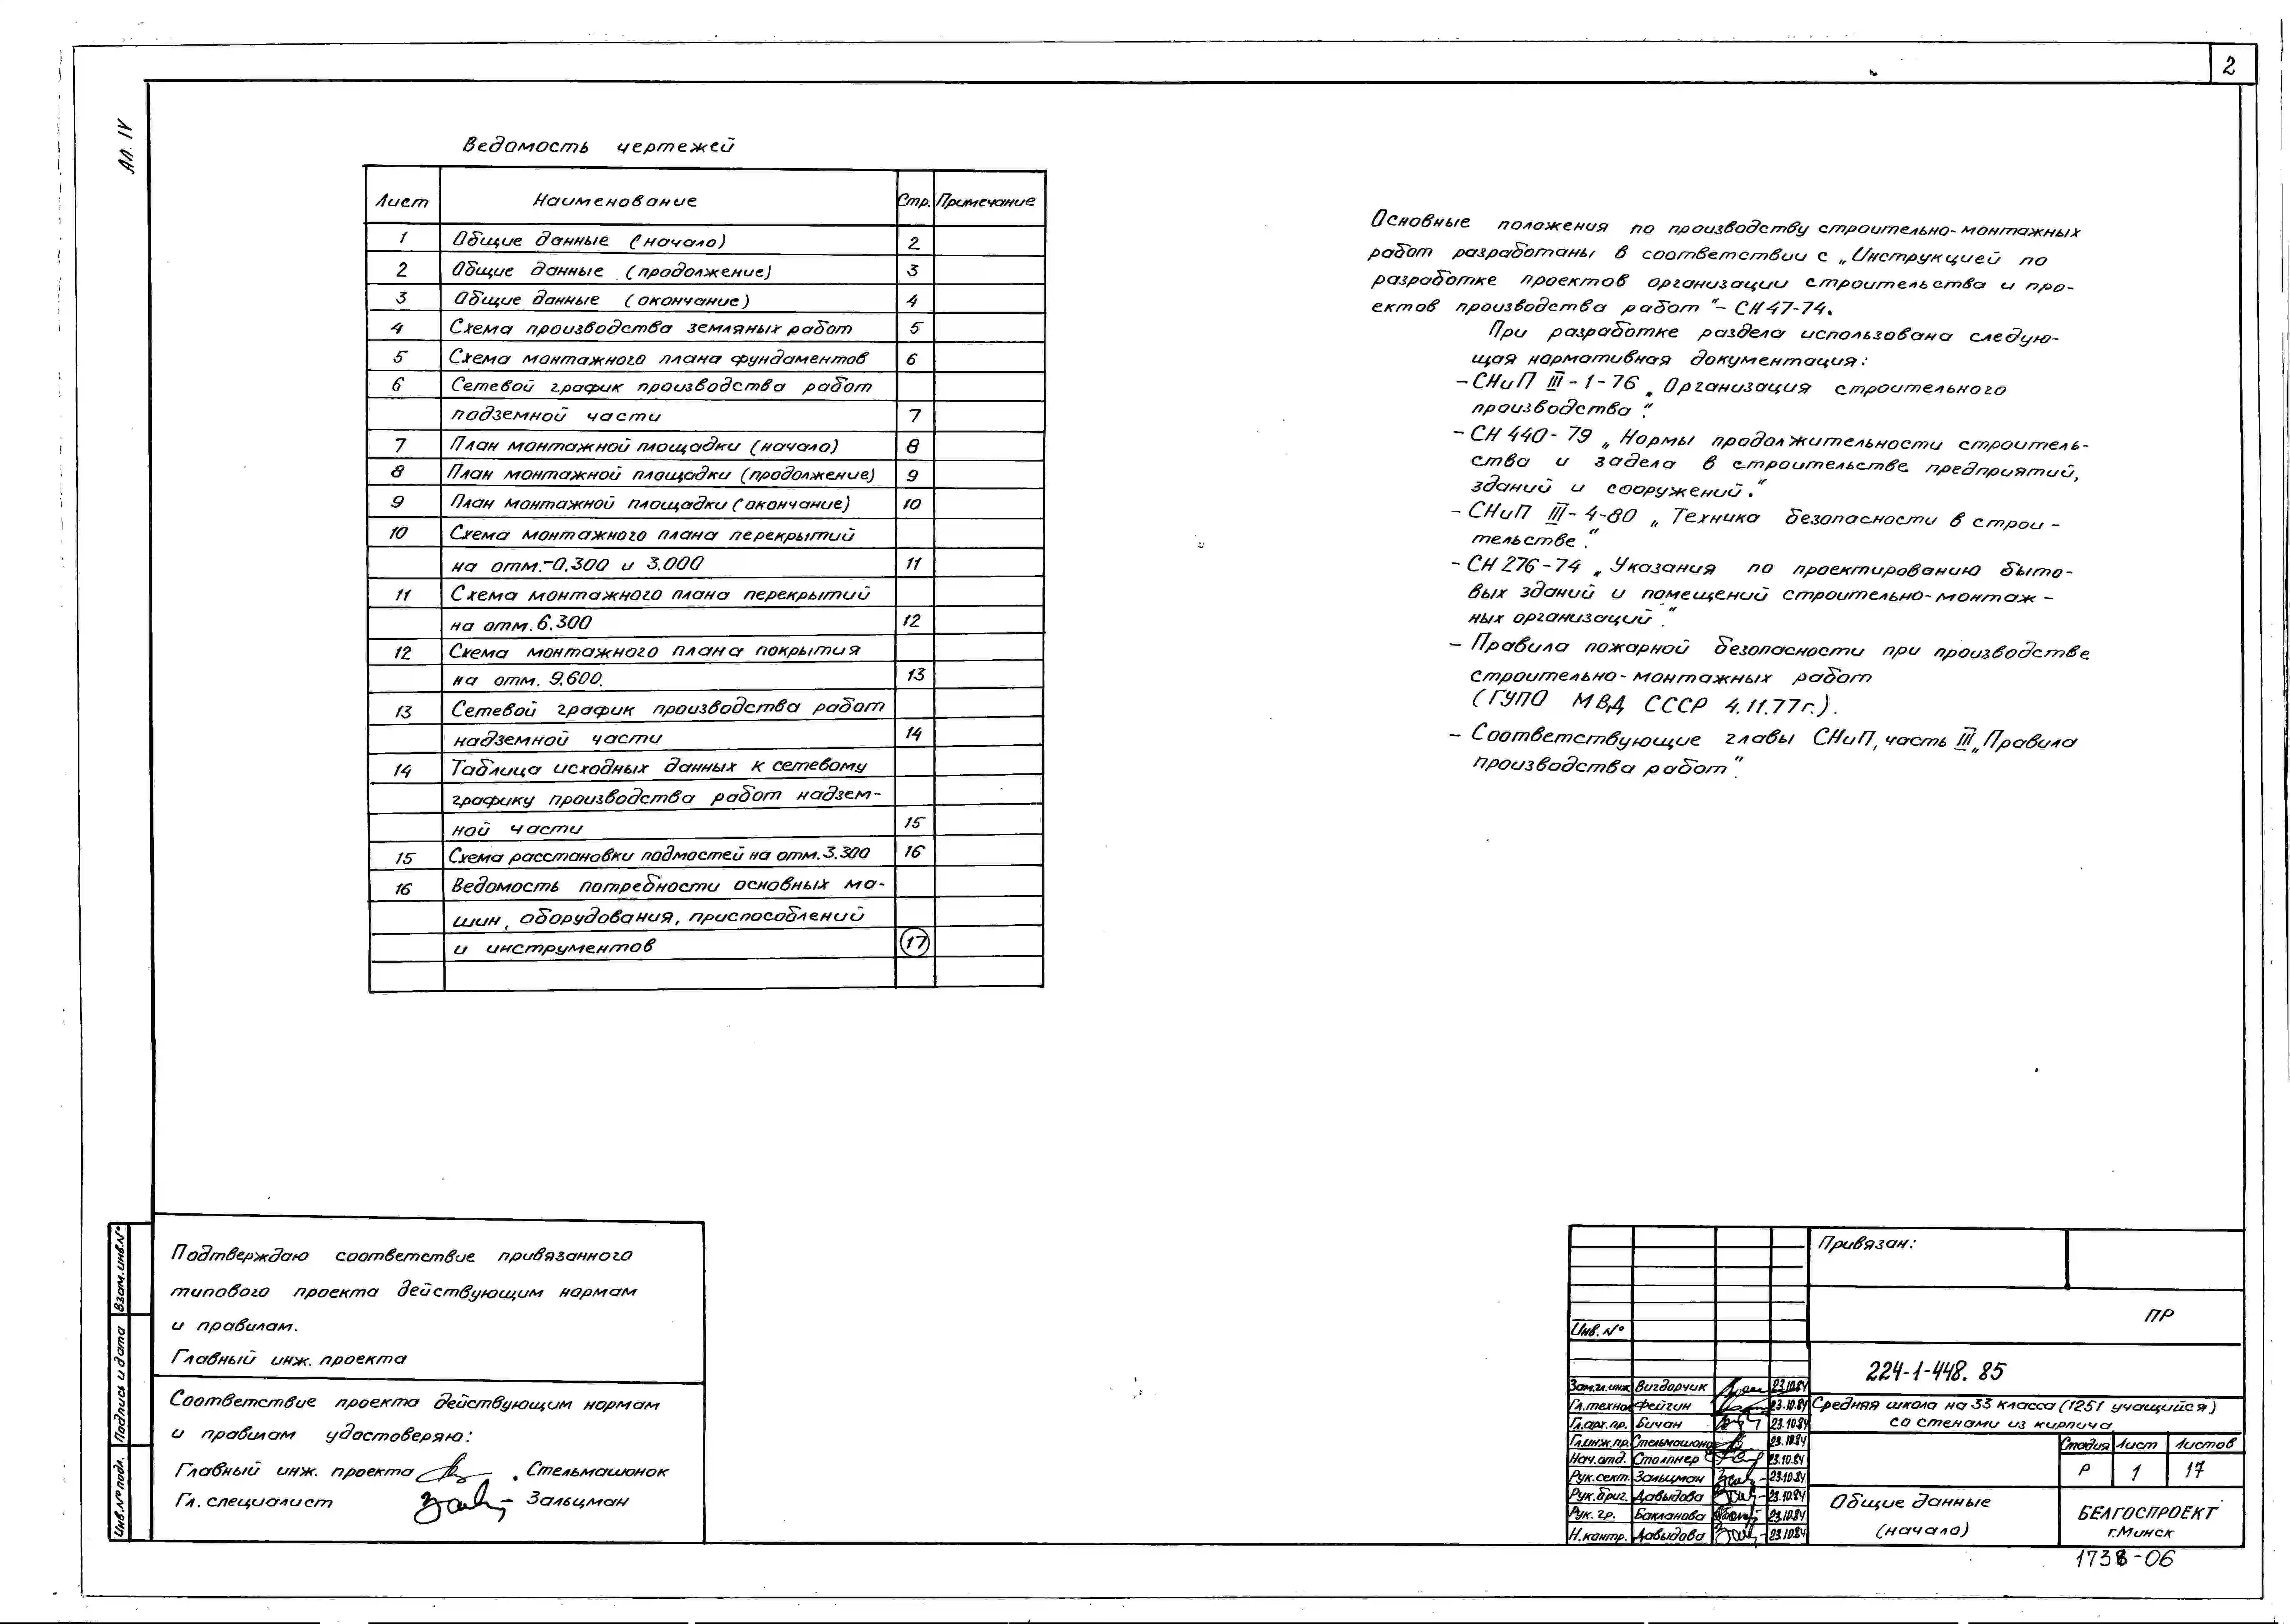 2
Ал. IV
Ведомость чертежей
Лист Наименование Стр. Примечание
1 Общие данные (начало) 2
2 Общие данные (продолжение) 3
3 Общие данные (окончание) 4
4 Схема производства земляных работ 5
5 Схема монтажного плана фундаментов 6
6 Сетевой график производства работ
подземной части 7
7 План монтажной площадки (начало) 8
8 План монтажной площадки (продолжение) 9
9 План монтажной площадки (окончание) 10
10 Схема монтажного плана перекрытий
на отм.-0.300 и 3.000 11
11 Схема монтажного плана перекрытий
на отм. 6.300 12
12 Схема монтажного плана покрытия
на отм. 9.600. 13
13 Сетевой график производства работ
надземной части 14
14 Таблица исходных данных к сетевому
графику производства работ надзем-
ной части 15
15 Схема расстановки подмостей на отм. 3.300 16
16 Ведомость потребности основных ма-
шин, оборудования, приспособлений
и инструментов 17
Основные положения по производству строительно-монтажных
работ разработаны в соответствии с „Инструкцией по
разработке проектов организации строительства и про-
ектов производства работ"- СН 47-74.
При разработке раздела использована следую-
щая нормативная документация:
- СНиП III-1-76 „Организация строительного
производства".
- СН 440-79 „Нормы продолжительности строитель-
ства и задела в строительстве предприятий,
зданий и сооружений."
- СНиП III-4-80 „Техника безопасности в строи-
тельстве".
- СН 276-74 „Указания по проектированию быто-
вых зданий и помещений строительно-монтаж-
ных организаций".
- Правила пожарной безопасности при производстве
строительно-монтажных работ
(ГУПО МВД СССР 4.11.77г.).
- Соответствующие главы СНиП, часть III „Правила
производства работ".
Подтверждаю соответствие привязанного
типового проекта действующим нормам
и правилам.
Главный инж. проекта
Соответствие проекта действующим нормам
и правилам удостоверяю:
Главный инж. проекта Стельмашонок
Гл. специалист Зальцман
Взам.инв.№
Подпись и дата
Инв.№ подл.
Привязан:
ПР
Инв. №
224-1-448.85
Зам.гл.инж Вигдорчик 23.10.84
Гл.техно Фейгин 23.10.84
Гл.арх.пр. Бичан 23.10.84
Гл.инж.пр. Стельмашоно 23.10.84
Нач.отд. Столпнер 23.10.84
Рук.сект. Зальцман 23.10.84
Рук.бриг. Давыдова 23.10.84
Рук. гр. Бакланова 23.10.84
Н.контр. Давыдова 23.10.84
Средняя школа на 33 класса (1251 учащийся)
со стенами из кирпича
Стадия Лист Листов
Р 1 17
Общие данные
(начало)
БЕЛГОСПРОЕКТ
г.Минск
1738-06